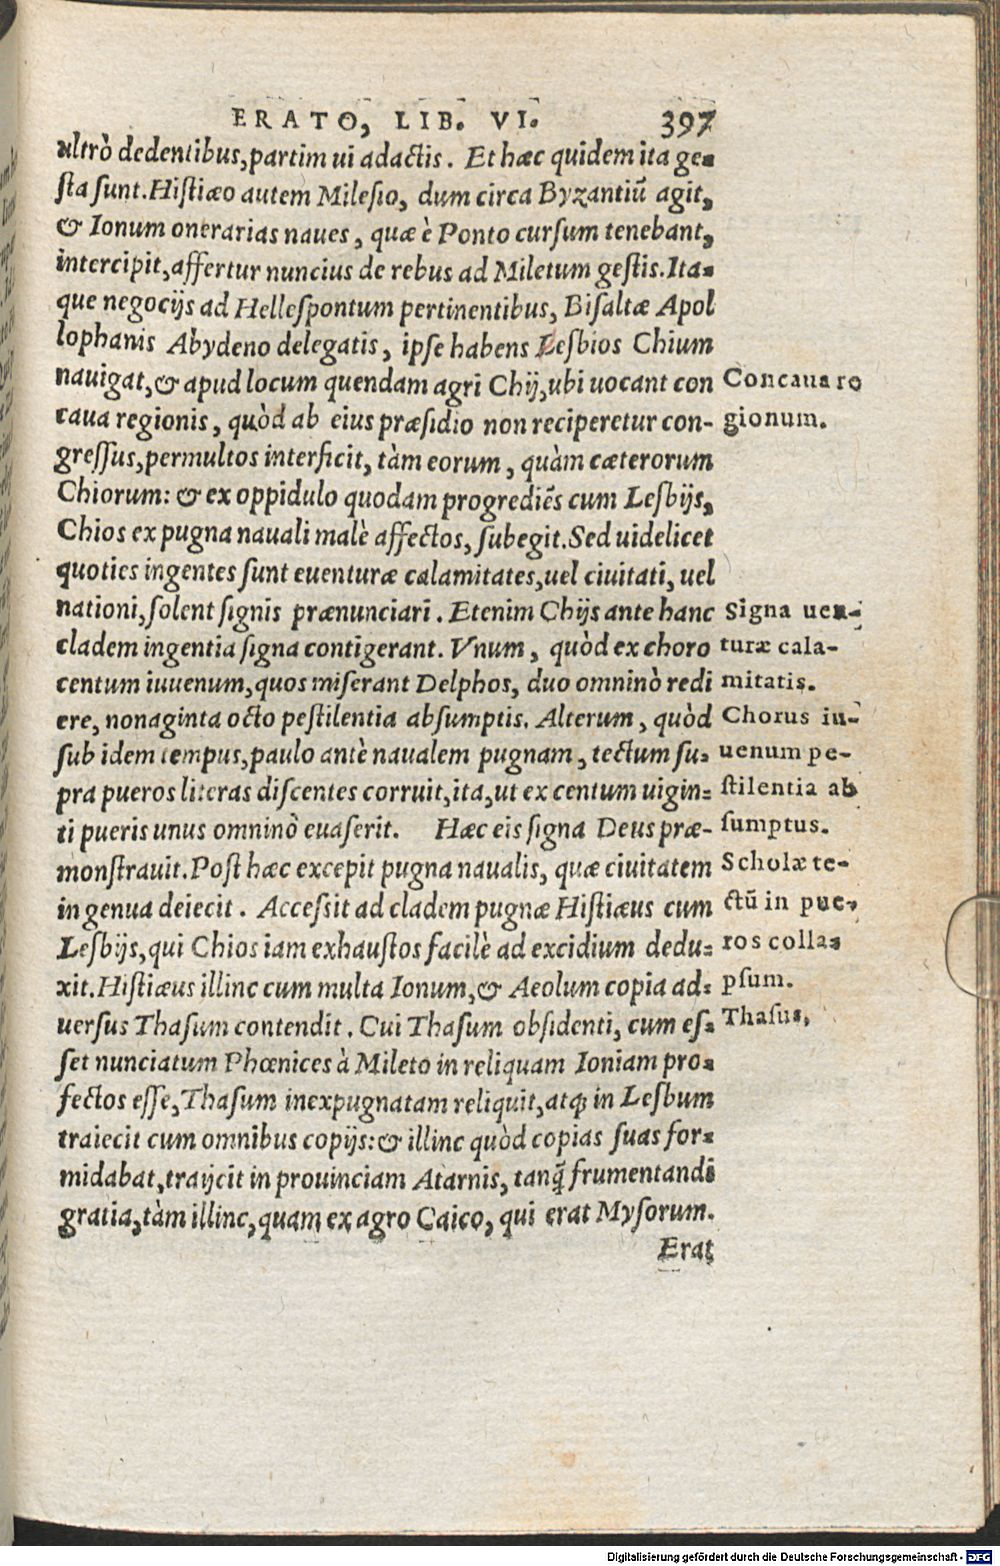 ERATO, LIB. VI. 397
ultrò dedentibus, partim ui adactis. Et hæc quidem ita ge-
sta sunt. Histiæo autem Milesio, dum circa Byzantiũ agit,
& Ionum onerarias naues, quæ è Ponto cursum tenebant,
intercipit, affertur nuncius de rebus ad Miletum gestis. Ita-
que negocijs ad Hellespontum pertinentibus, Bisaltæ Apol
lophanis Abydeno delegatis, ipse habens Lesbios Chium
nauigat, & apud locum quendam agri Chij, ubi uocant con
caua regionis, quòd ab eius præsidio non reciperetur con-
gressus, permultos interficit, tàm eorum, quàm cæterorum
Chiorum: & ex oppidulo quodam progrediẽs cum Lesbijs,
Chios ex pugna nauali malè affectos, subegit. Sed uidelicet
quoties ingentes sunt euenturæ calamitates, uel ciuitati, uel
nationi, solent signis prænunciari. Etenim Chijs ante hanc
cladem ingentia signa contigerant. Vnum, quòd ex choro
centum iuuenum, quos miserant Delphos, duo omninò redi
ere, nonaginta octo pestilentia absumptis. Alterum, quòd
sub idem tempus, paulo antè naualem pugnam, tectum su-
pra pueros literas discentes corruit, ita, ut ex centum uigin-
ti pueris unus omninò euaserit. Hæc eis signa Deus præ-
monstrauit. Post hæc excepit pugna naualis, quæ ciuitatem
in genua deiecit. Accessit ad cladem pugnæ Histiæus cum
Lesbijs, qui Chios iam exhaustos facilè ad excidium dedu-
xit. Histiæus illinc cum multa Ionum, & Aeolum copia ad-
uersus Thasum contendit. Cui Thasum obsidenti, cum es-
set nunciatum Phœnices à Mileto in reliquam Ioniam pro-
fectos esse, Thasum inexpugnatam reliquit, atq; in Lesbum
traiecit cum omnibus copijs: & illinc quòd copias suas for-
midabat, traijcit in prouinciam Atarnis, tanq̃ frumentandi
gratia, tàm illinc, quam ex agro Caico, qui erat Mysorum.
Erat
Concaua re
gionum.
Signa uen-
turæ cala-
mitatis.
Chorus iu-
uenum pe-
stilentia ab
sumptus.
Scholæ te-
ctũ in pue-
ros colla-
psum.
Thasus,
Digitalisierung gefördert durch die Deutsche Forschungsgemeinschaft - DFG